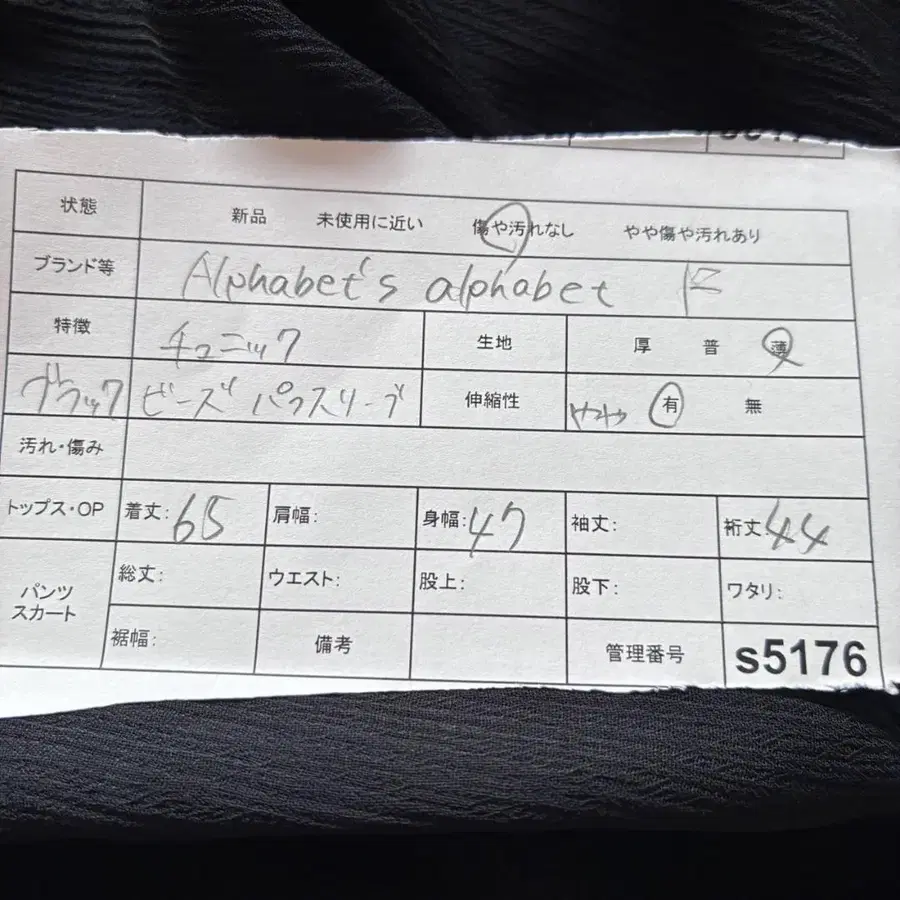 状態 新品 未使用に近い 傷や汚れなし やや傷や汚れあり
ブランド等 Alphabet's alphabet
特徴 チュニック 生地 厚 普 薄
ブラック ビーズ パフスリーブ 伸縮性 やや 有 無
汚れ・傷み
トップス・OP 着丈: 65 肩幅: 身幅: 47 袖丈: 裄丈: 44
パンツ スカート 総丈: ウエスト: 股上: 股下: ワタリ:
裾幅: 備考 管理番号 s5176